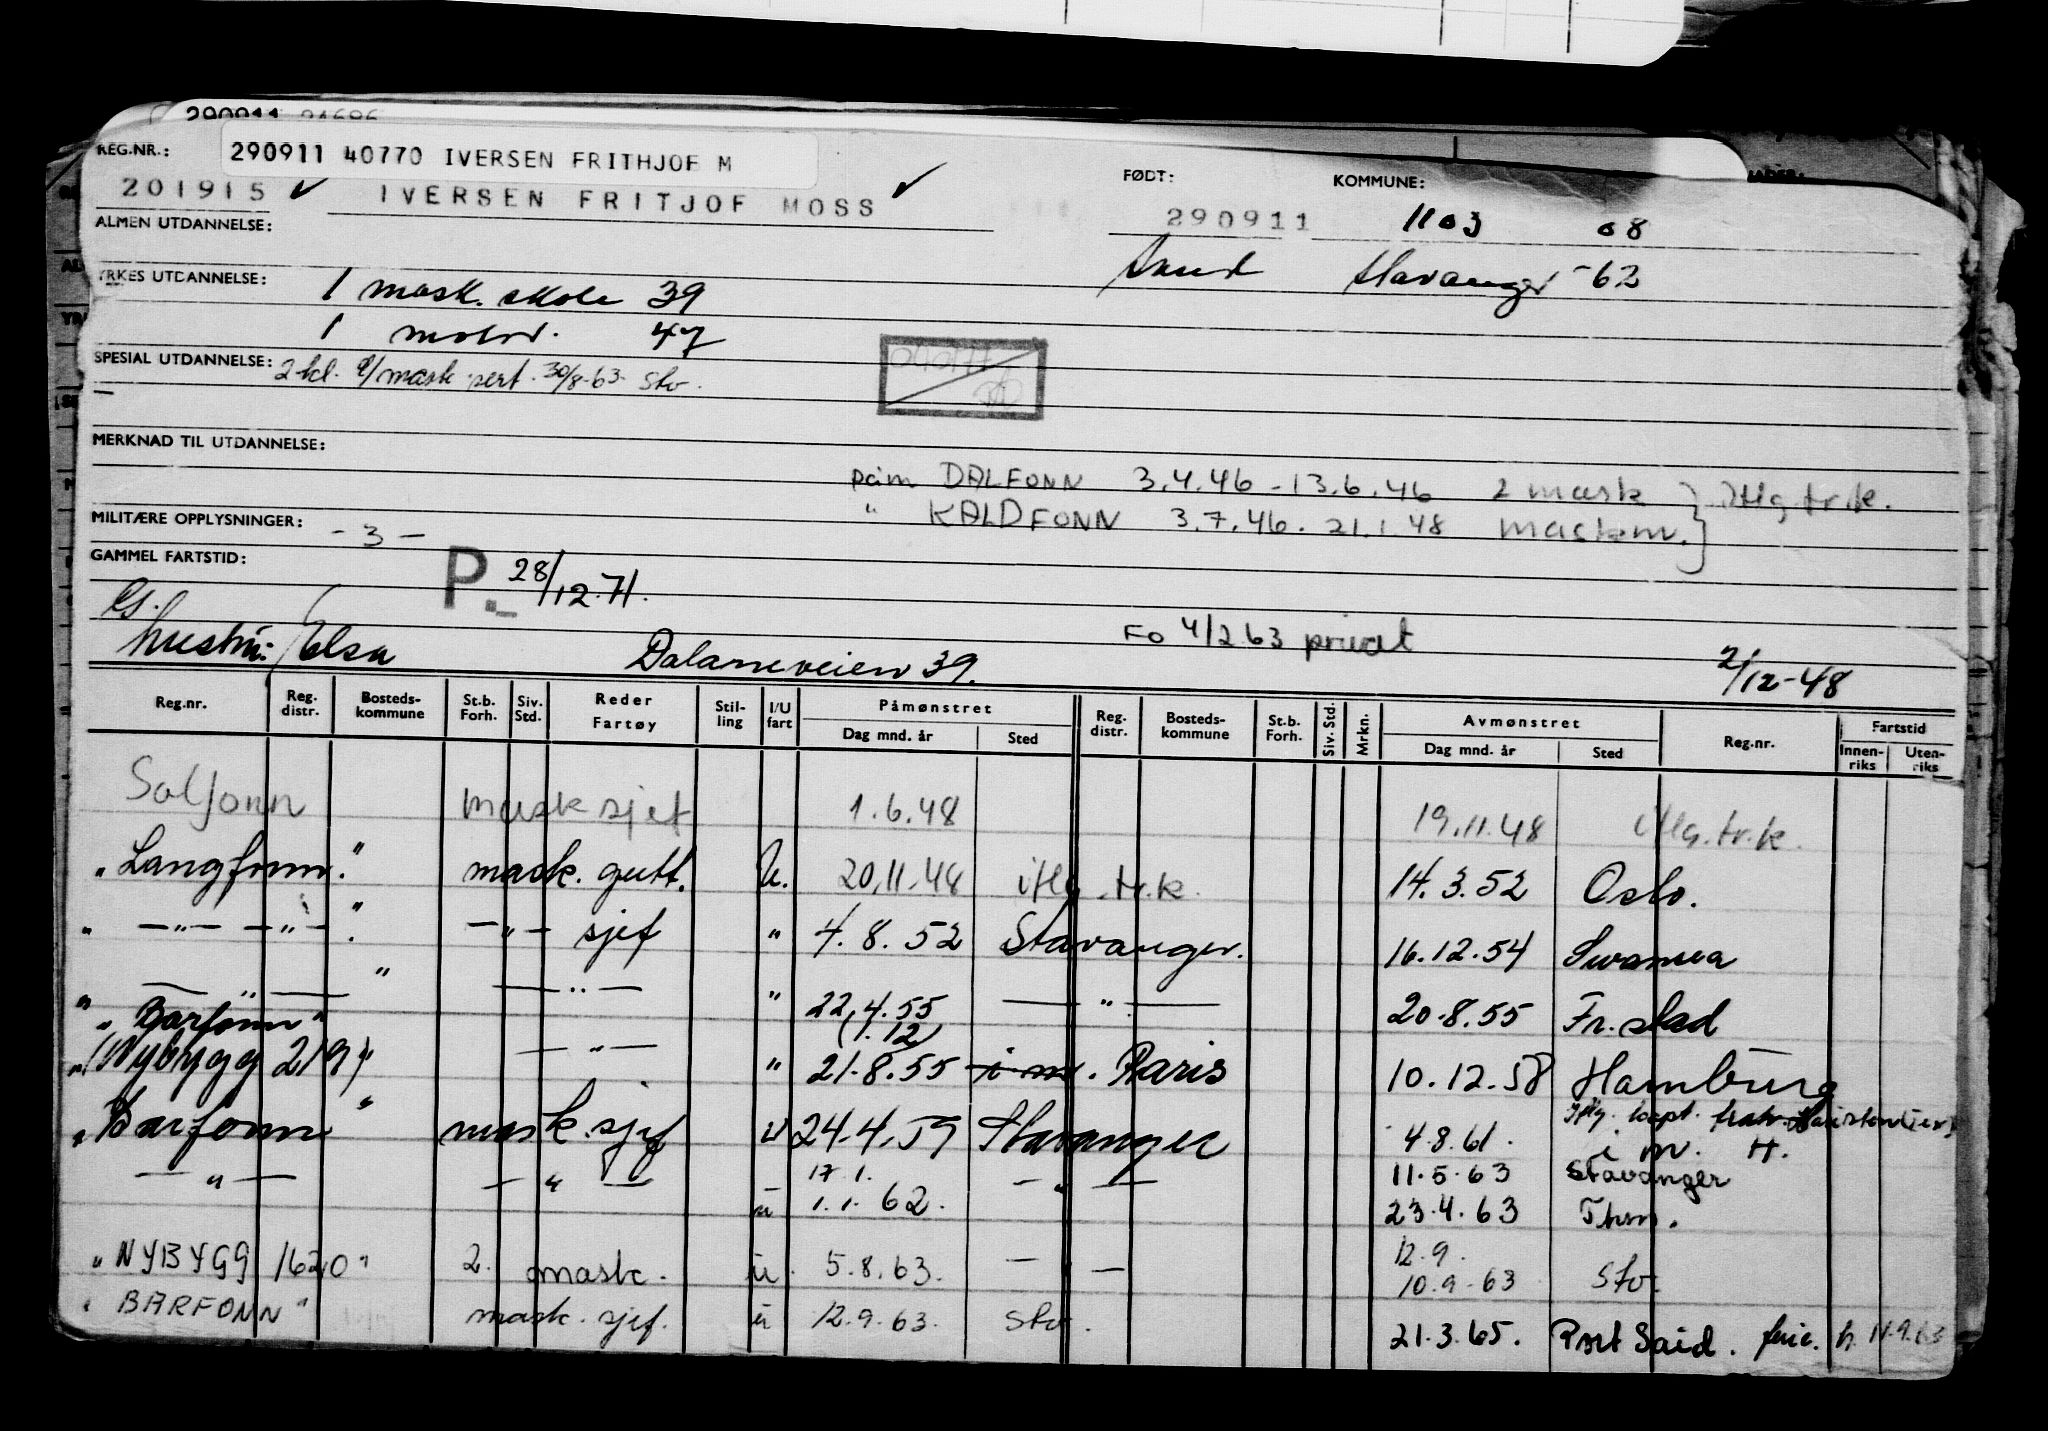 290911
REG.NR.: 290911 40770 IVERSEN FRITHJOF M
FØDT: KOMMUNE:
201915 ✓ IVERSEN FRITJOF MOSS ✓ 290911 1103 08
ALMEN UTDANNELSE:
Stavanger -62
YRKES UTDANNELSE: 1 mask. skole 39
1 motor. 47
SPESIAL UTDANNELSE: 2 kl. mask sert. 30/8-63 Stv.
MERKNAD TIL UTDANNELSE:
påm DALFONN 3.4.46 - 13.6.46 2 mask } iflg tr.k.
" KALDFONN 3.7.46. 21.1.48 maskm.
MILITÆRE OPPLYSNINGER: -3-
GAMMEL FARTSTID:
P. 28/12.71.
G.
hustru: Elsa Dalaneveien 39. FO 4/2 63 privat 2/12-48
Reg.nr. Reg. distr. Bosteds- kommune St.b. Forh. Siv. Std. Reder Fartøy Stil- ling I/U fart Påmønstret Dag mnd. år Sted Reg. distr. Bosteds- kommune St.b. Forh. Siv. Std. Mrkn. Avmønstret Dag mnd. år Sted Reg.nr. Fartstid Innen- riks Uten- riks
Solfonn mask sjef 1.6.48 19.11.48 iflg.tr.k.
"Langfonn." mask. gutt. U. 20.11.48 iflg.tr.k. 14.3.52 Oslo.
" —"— —"— ." —"— sjef " 4.8.52 Stavanger. 16.12.54 Swansea
" —"— " —"— " 22.4.55 —"— 20.8.55 Fr.stad
"Barfonn" (1.12)
"(Nybygg 219)" —"— " 21.8.55 i m. Paris 10.12.58 Hamburg
"Barfonn" mask.sjef U 24.4.59 Stavanger 4.8.61. i m. H.
—"— —"— 17.1. —"— 11.5.63 Stavanger
u 1.1.62. 23.4.63 Thm.
"NYBYGG 1620" 2. mask. u. 5.8.63. —"— 12.9.
10.9.63 Stv.
"BARFONN" mask. sjef. u 12.9.63. Stv. 21.3.65. Port Said. ferie. h. 11.9.63